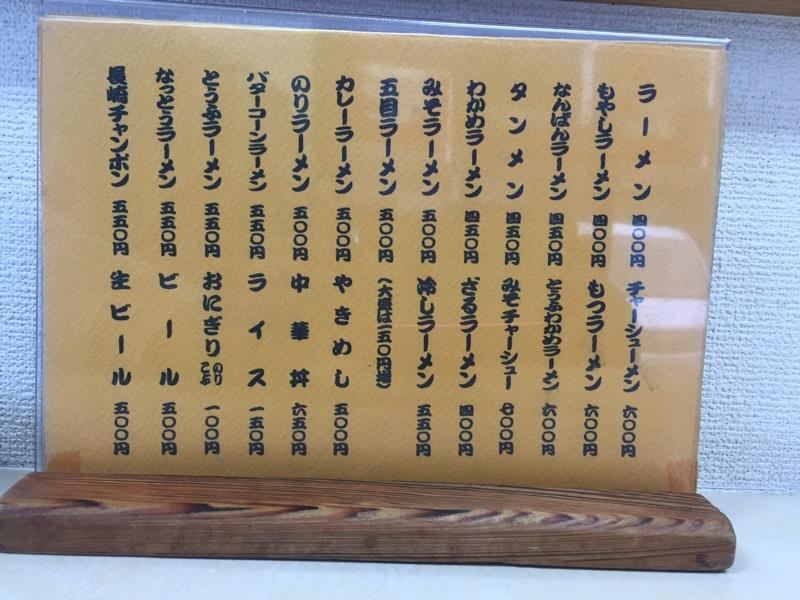 ラーメン 四〇〇円
もやしラーメン 四〇〇円
なんばんラーメン 四五〇円
タンメン 四五〇円
わかめラーメン 四五〇円
みそラーメン 五〇〇円
五目ラーメン 五〇〇円
カレーラーメン 五〇〇円
のりラーメン 五〇〇円
バターコーンラーメン 五五〇円
とうふラーメン 五五〇円
なっとうラーメン 五五〇円
長崎チャンポン 五五〇円
チャーシューメン 六〇〇円
もつラーメン 六〇〇円
とうふわかめラーメン 六〇〇円
みそチャーシュー 七〇〇円
ざるラーメン 四〇〇円
冷しラーメン 五五〇円
(大盛は一五〇円増)
やきめし 五〇〇円
中華丼 六五〇円
ライス 一五〇円
おにぎり のり こぶ 一〇〇円
ビール 五〇〇円
生ビール 五〇〇円